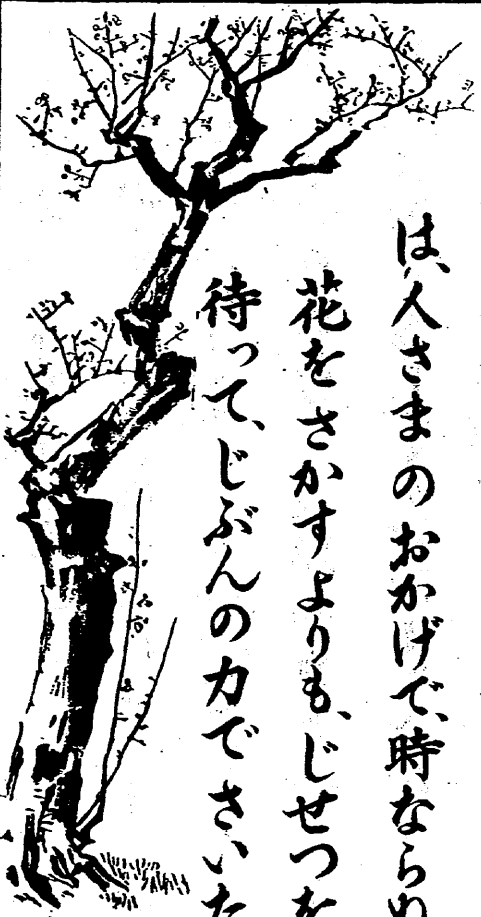 は、人さまのおかげで、時ならぬ
花をさかすよりも、じせつを
待って、じぶんの力でさいた